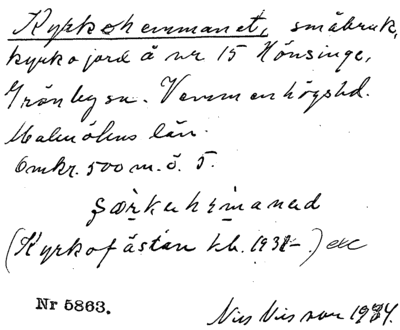 Kyrkohemmanet, småbruk,
kyrkojord å nr 15 Hönsinge,
Grönby sn. Vemmenhögs hd.
Malmöhus län.
Omkr. 500 m. ö. 5.
(Kyrkofästan kb. 1931-) etc
Nr 5863.
Nils Nilsson 1934.